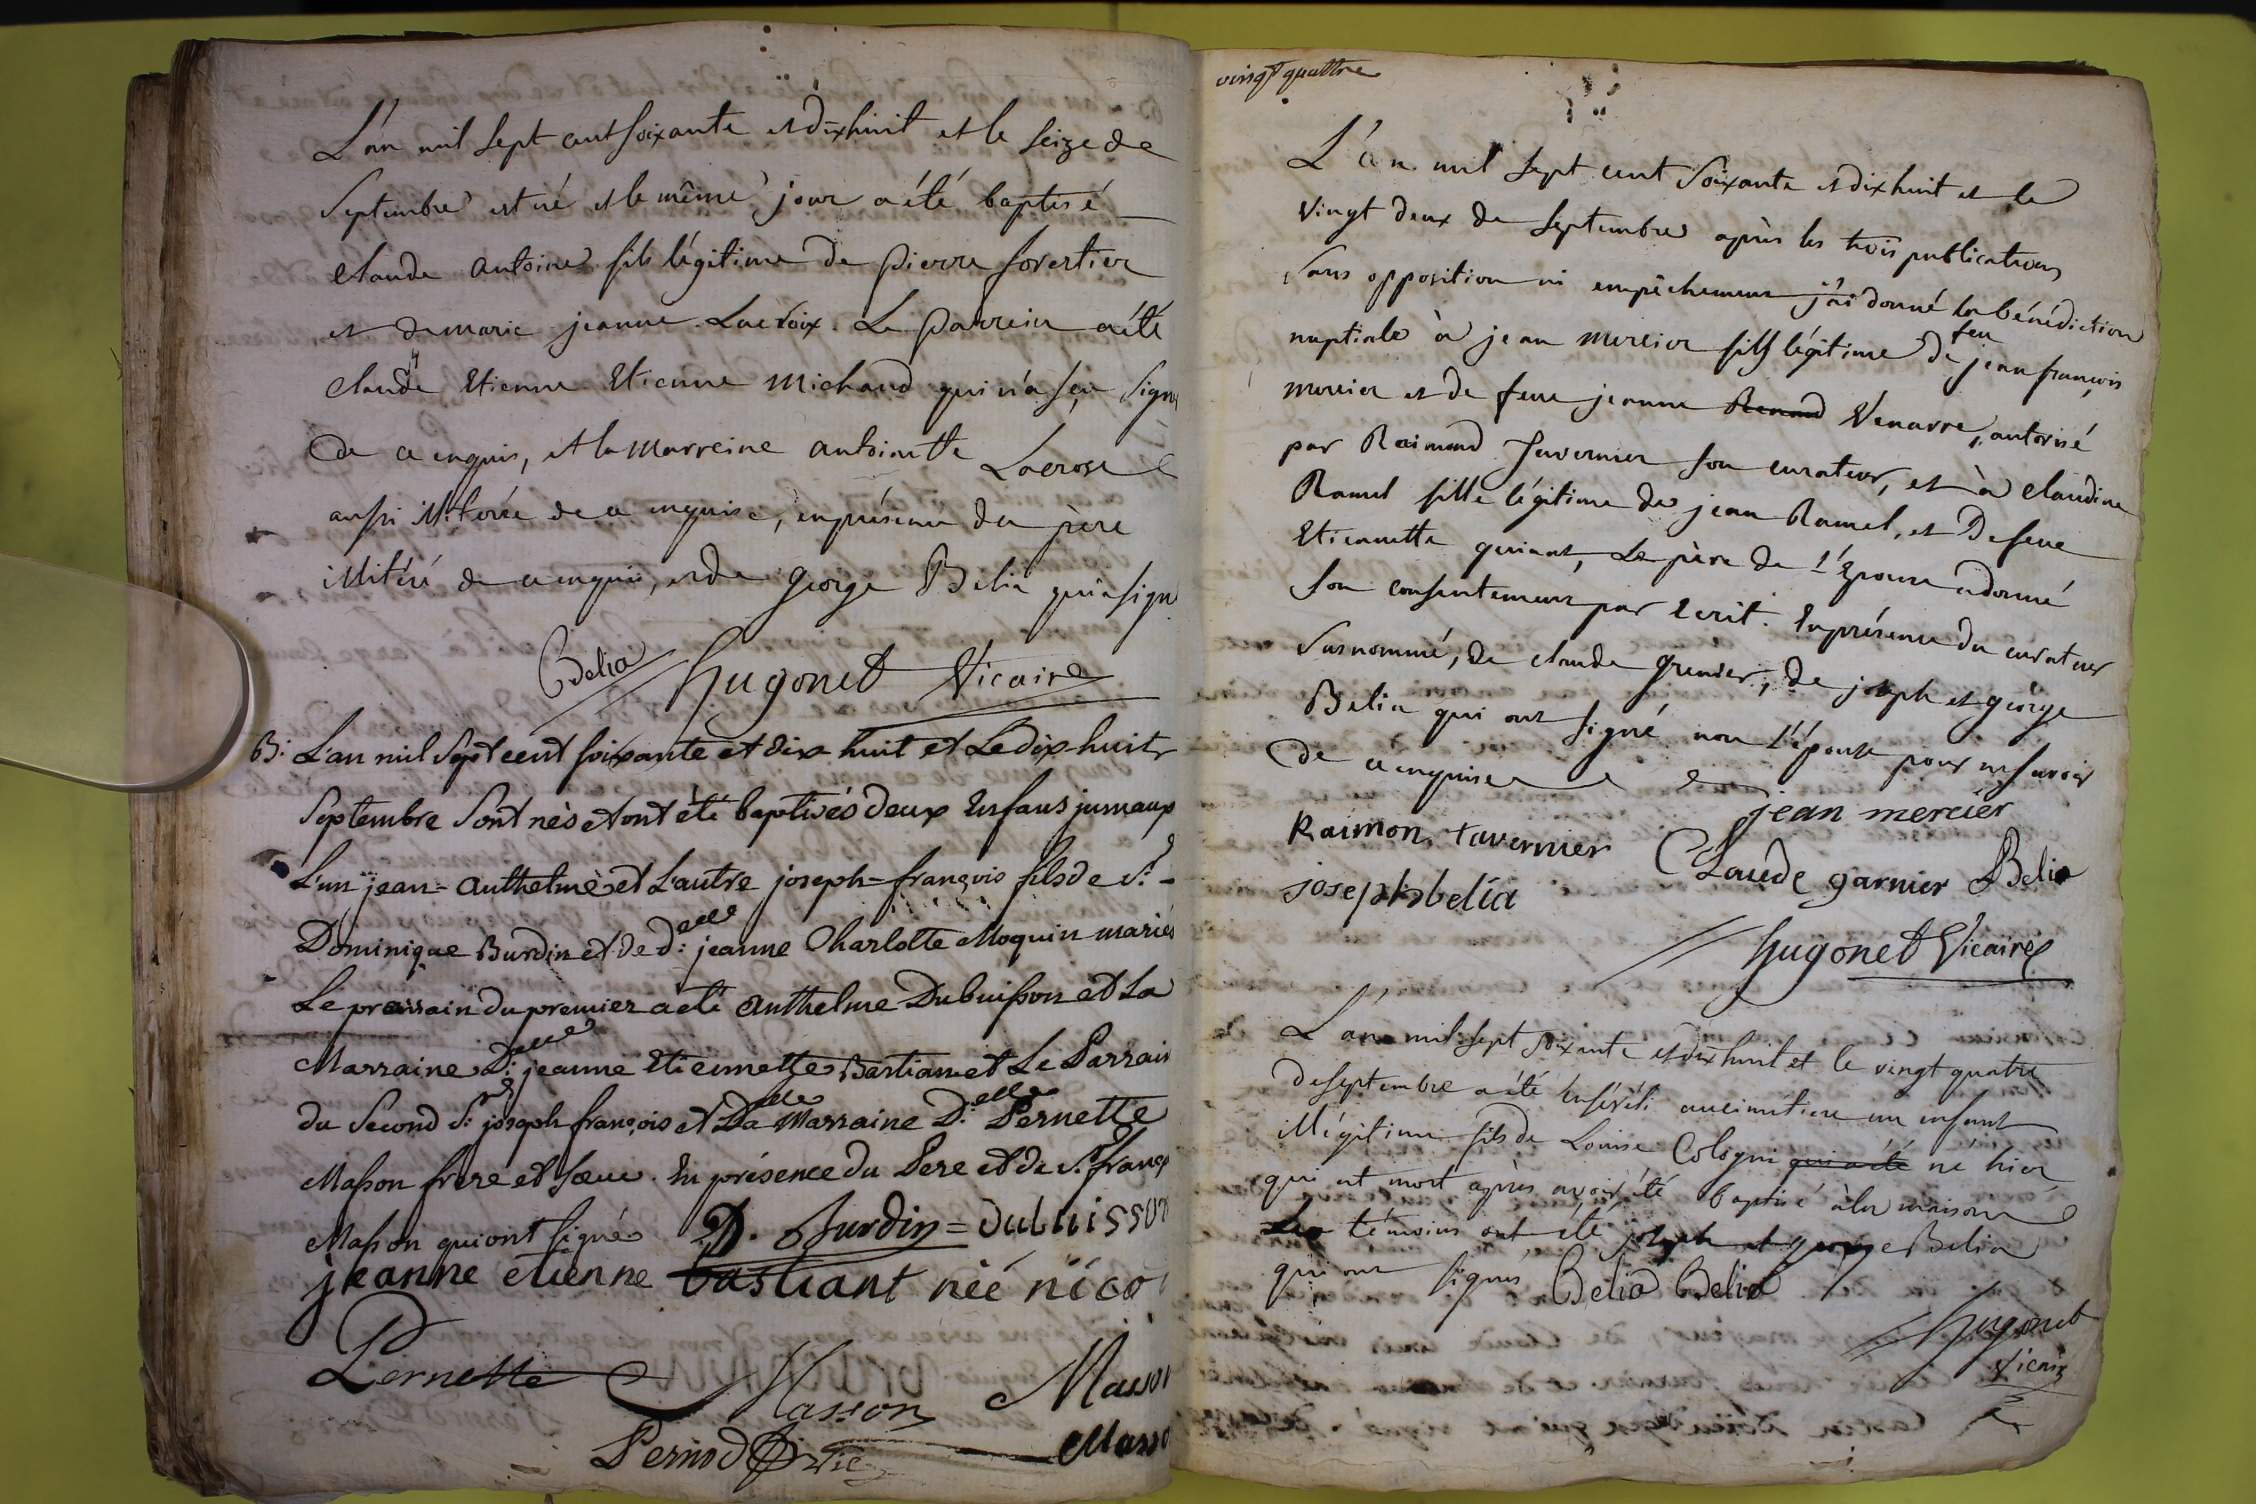 L'an mil sept cent soixante et dixhuit et le seize de
Septembre est né et le même jour a été baptisé
Claude Antoine fils légitime de Pierre forestier
et de marie jeanne Lacroix. Le Parrein a été
Claude Etienne Etienne Michaud qui n'a sçu signe
de ce enquis, et la Marreine antoinette Lacrose
aussi illiterée de ce enquise, en présence du père
illitéré de ce enquis, et de George Belia qui a signé
Belia Hugonet Vicaire
B: L'an mil sept cent soixante et dix huit et Le dix huit
Septembre Sont nès et ont èté baptisés deux Enfans jumaux
L'un jean=Anthelme et L'autre joseph=françois fils de Sr.
Dominique Burdin et de d.elle jeanne Charlotte Moquin mariés
Le parrain du premier a eté Anthelme Dubuisson et La
Marraine D.elle jeanne Etiennette Bastian et Le Parrain
du Second Sr. joseph françois et La Marraine D.elle Pernette
Masson frere et sœur. En présence du Pere et de Sr. franç
Masson qui ont signé D. Burdin = Dubuisson
jeanne etienne bastiant neé nico
Pernette Masson Masson
Pernod Vic Masso
vingt quattre
L'an mil sept cent Soixante et dixhuit et le
Vingt deux de Septembre après les trois publications
Sans opposition ni empêchement j'ai donné la bénédiction
nuptiale à jean mercier fils légitime de feu jean françois
mercier et de feue jeanne Renand Venarre, autorisé
par Raimond Tavernier son curateur, et à Claudine
Ramel fille légitime de jean Ramel, et De feue
Etiennette guinant, Le père de l'Epouse a donné
son consentement par Ecrit. En présence du curateur
Susnommé, de Claude Grenier, de joseph et géorge
Belia qui ont signé non l'épouse pour ne savoir
de ce enquise
jean mercier
Raimon tavernier
Claude garnier Belia
joseph belia
Hugonet Vicaire
L'an mil sept soixante et dixhuit et le vingt quatre
de septembre a été Enséveli au cimetiere un enfant
illégitime fils de Louise Cologni qui a été né hier
qui est mort après avoir été baptisé à la maison
Les témoins ont été joseph et george Belia
qui ont signés Belia Belia
Hugonet
Vicaire